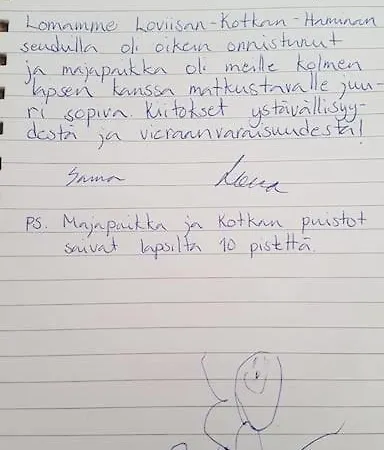 Lomamme Loviisan-Kotkan-Haminan
seudulla oli oikein onnistunut
ja majapaikka oli meille kolmen
lapsen kanssa matkustavalle juu-
ri sopiva. Kiitokset ystävällisyy-
destä ja vieraanvaraisuudesta!
PS. Majapaikka ja Kotkan puistot
saivat lapsilta 10 pistettä.